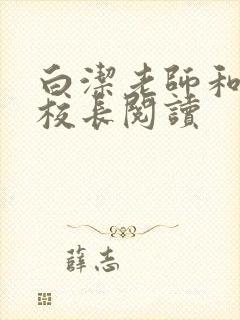 白潔老師和
校長閱讀
薛志